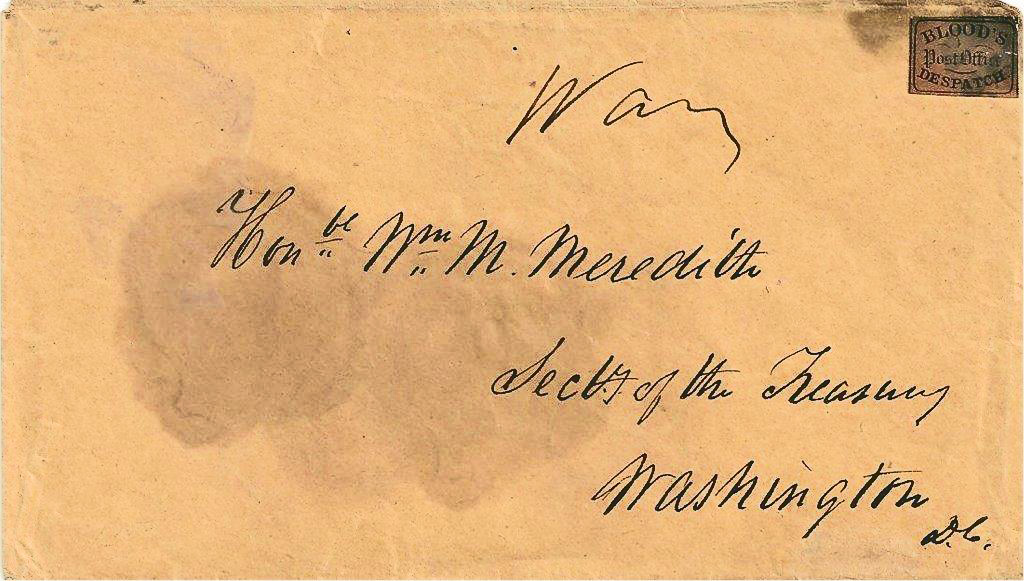 BLOOD'S
Post Office
DESPATCH
Honble Wm M. Meredith
Secty of the Treasury
Washington
D.C.